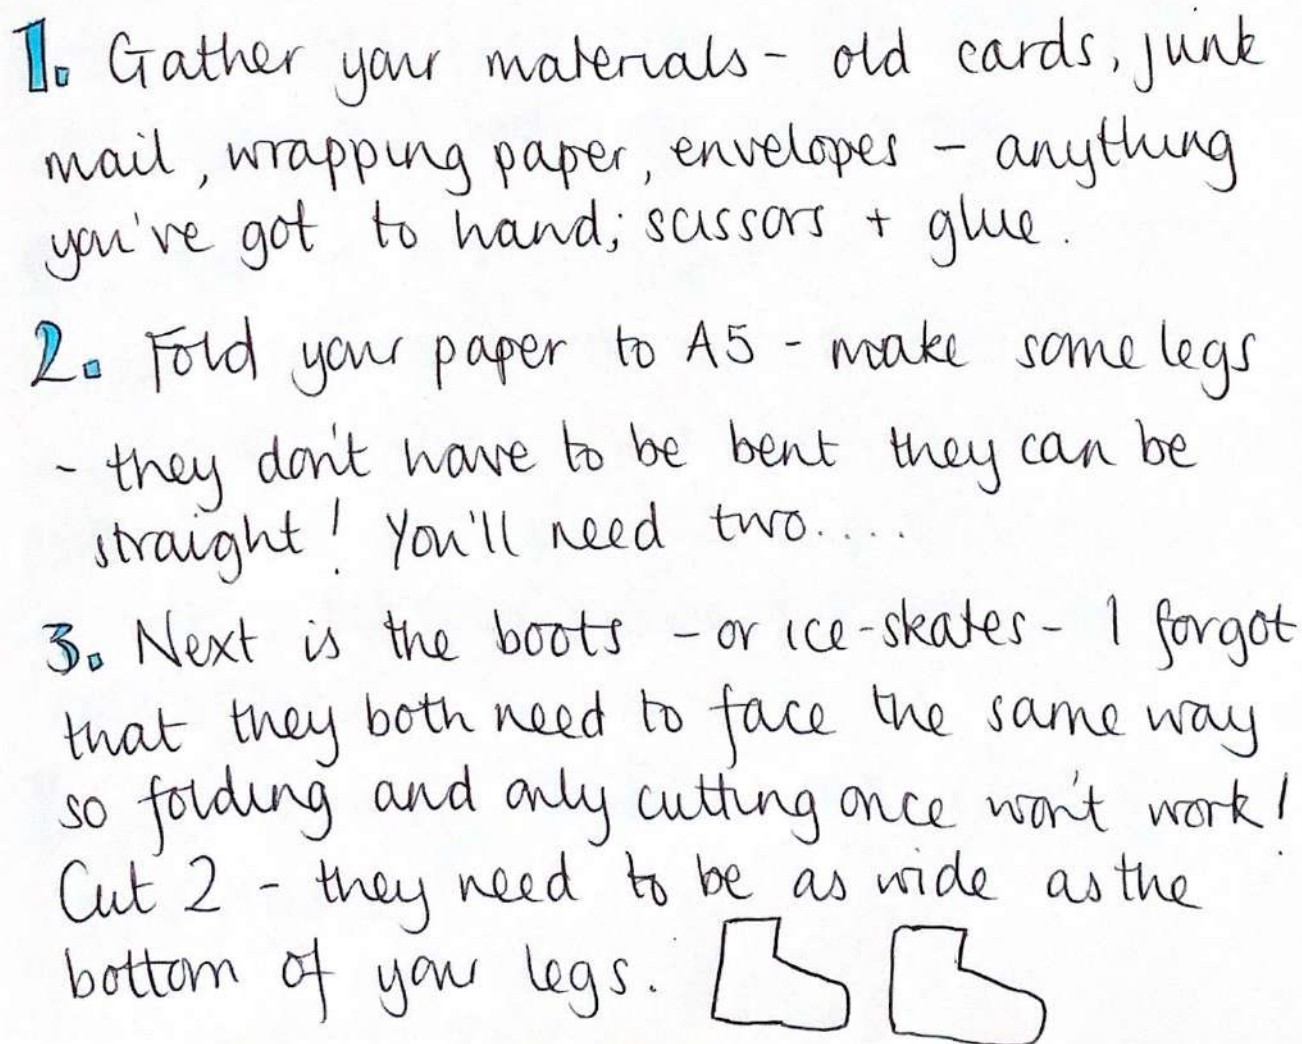 1. Gather your materials - old cards, junk
mail, wrapping paper, envelopes - anything
you've got to hand; scissors + glue.
2. Fold your paper to A5 - make some legs
- they don't have to be bent they can be
straight! You'll need two....
3. Next is the boots - or ice-skates - I forgot
that they both need to face the same way
so folding and only cutting once won't work!
Cut 2 - they need to be as wide as the
bottom of your legs.